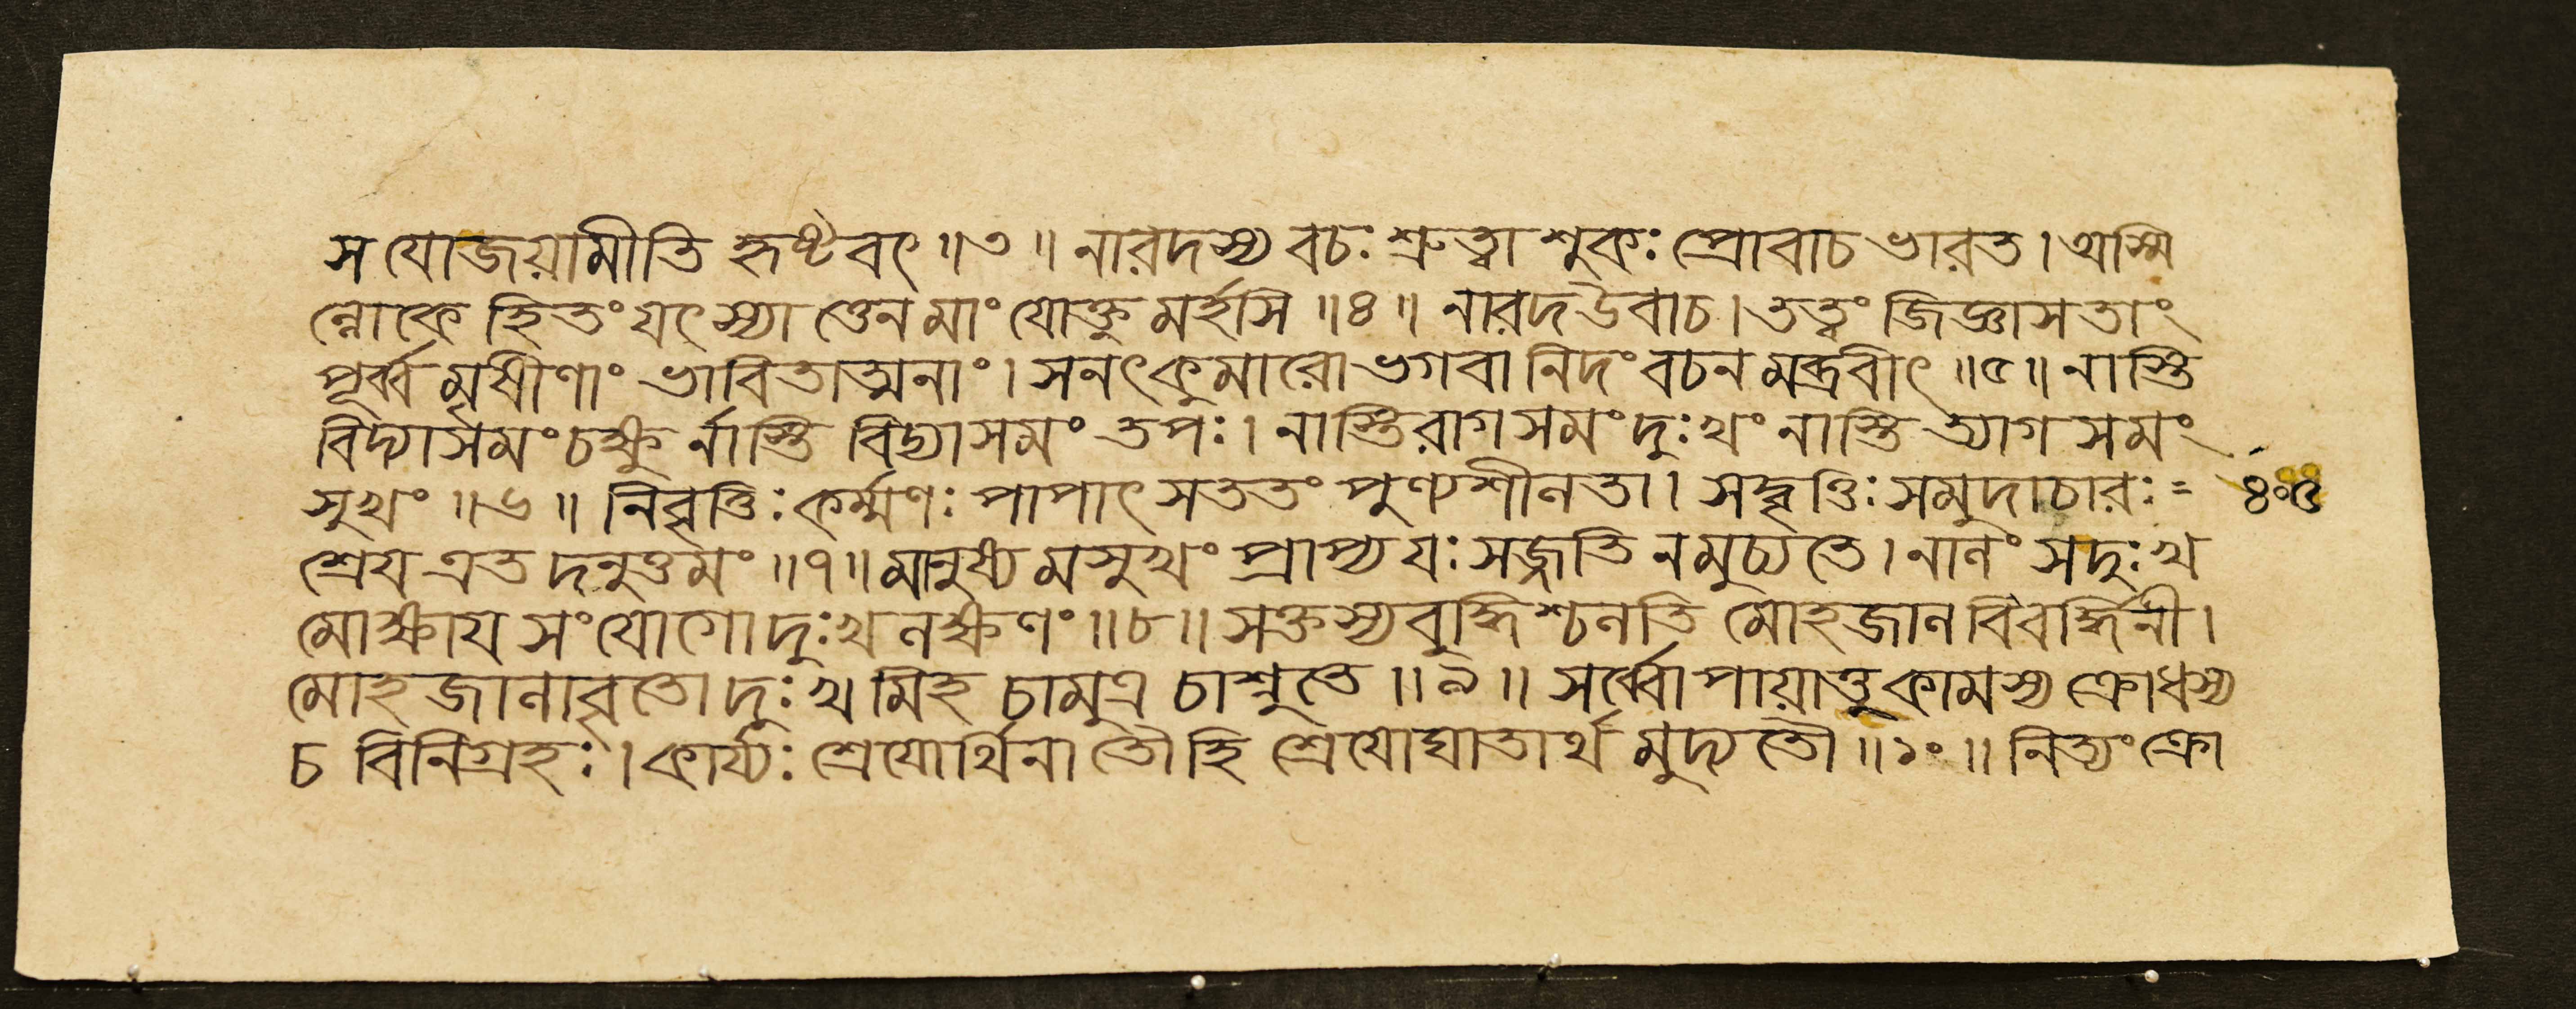 স যোজয়ামীতি হৃষ্টবৎ ॥৩॥ নারদস্য বচঃ শ্রুত্বা শুকঃ প্রোবাচ ভারত। অস্মি
ন্লোকে হিতং যৎস্যা ত্তেন মাং যোক্তু মর্হসি ॥৪॥ নারদ উবাচ। তত্ত্বং জিজ্ঞাসতাং
পূর্ব্ব মৃষীণাং ভাবিতাত্মনাং। সনৎকুমারো ভগবা নিদং বচন মব্রবীৎ ॥৫॥ নাস্তি
বিদ্যাসমং চক্ষু র্নাস্তি বিদ্যাসমং তপঃ। নাস্তি রাগসমং দুঃখং নাস্তি ত্যাগ সমং
সুখং ॥৬॥ নিবৃত্তিঃ কর্ম্মণঃ পাপাৎ সততং পুণ্যশীলতা। সদ্বৃত্তিঃ সমুদাচারঃ = ৪০৫
শ্রেয় এত দনুত্তমং ॥৭॥ মানুষ্য মসুখং প্রাপ্য যঃ সজ্জতি ন মুচ্যতে। নালং স দুঃখ
মোক্ষায় সংযোগো দুঃখ লক্ষণং ॥৮॥ সক্তস্য বুদ্ধিশ্চলতি মোহজাল বিবর্দ্ধিনী।
মোহ জালাবৃতো দুঃখ মিহ চামুত্র চাশ্নুতে ॥৯॥ সর্ব্বোপায়াত্তু কামস্য ক্রোধস্য
চ বিনিগ্রহঃ। কার্য্যঃ শ্রেয়োর্থিনা তৌ হি শ্রেয়োঘাতার্থ মুদ্যতৌ ॥১০॥ নিত্যং ক্রো